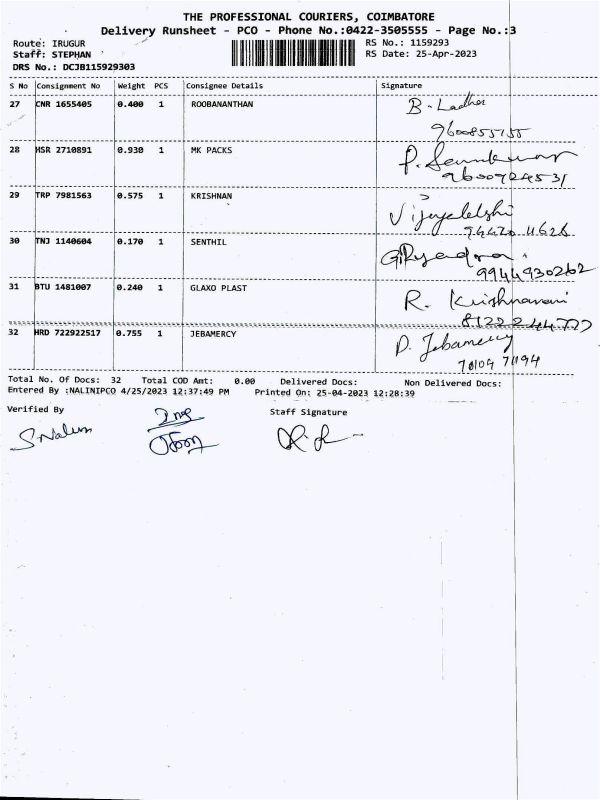 THE PROFESSIONAL COURIERS, COIMBATORE
Delivery Runsheet - PCO - Phone No.:0422-3505555 - Page No.:3
Route: IRUGUR RS No.: 1159293
Staff: STEPHAN RS Date: 25-Apr-2023
DRS No.: DCJB115929303
S No Consignment No Weight PCS Consignee Details Signature
27 CNR 1655405 0.400 1 ROOBANANTHAN B. Ladha
9600855155
28 HSR 2710891 0.930 1 MK PACKS
9600724531
29 TRP 7981563 0.575 1 KRISHNAN Vijayalakshi
30 TNJ 1140604 0.170 1 SENTHIL
9944930262
31 BTU 1481007 0.240 1 GLAXO PLAST R. Krishnaveni
32 HRD 722922517 0.755 1 JEBAMERCY D. Jebamercy
Total No. Of Docs: 32 Total COD Amt: 0.00 Delivered Docs: Non Delivered Docs:
Entered By :NALINIPCO 4/25/2023 12:37:49 PM Printed On: 25-04-2023 12:28:39
Verified By Staff Signature
S. Nalini